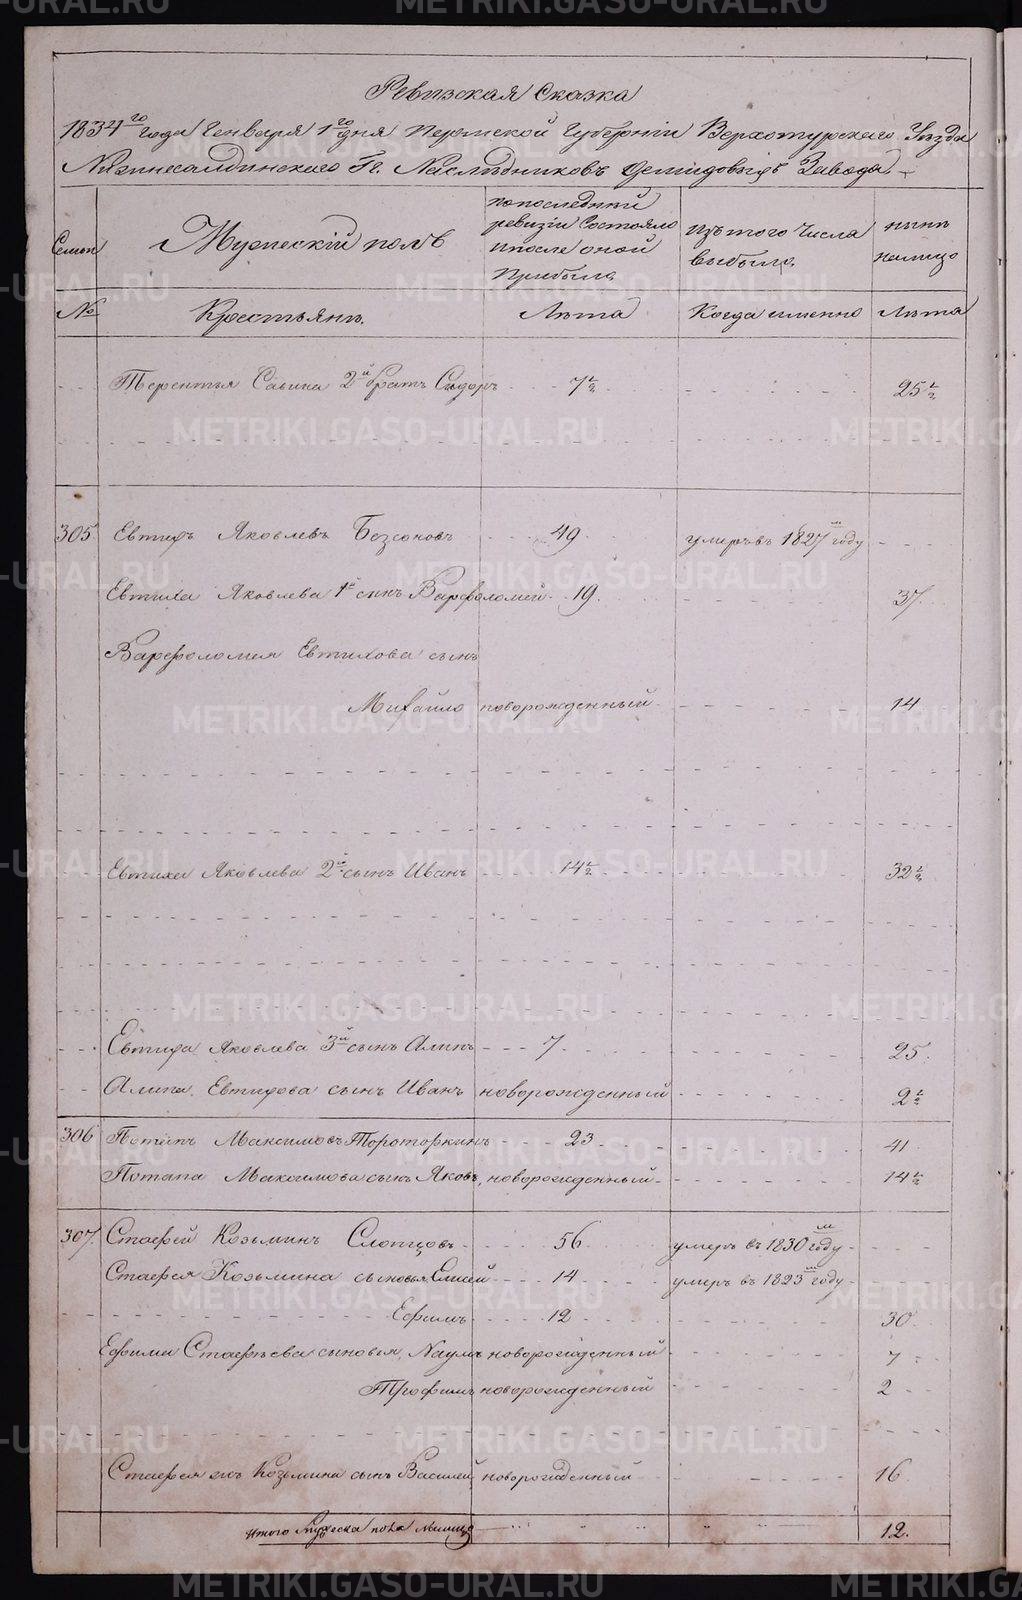 Ревизская Сказка
1834го года Генваря 1го дня Пермской Губернiи Верхотурскаго Уезда
Нижнесалдинскаго Гг. Наследниковъ Демидовыхъ Завода.
Семьи
Мужескiй полъ
По последней
ревизiи Состояло
и после оной
Прибыло
Изъ того Числа
выбыло.
ныне
налицо
№
Крестьянъ.
Лета
Когда именно
Лета
Терентья Савина 2й братъ Сидоръ 7½ 25½
305 Евтифъ Яковлевъ Безсоновъ 49 умеръ въ 1827м году
Евтиха Яковлева 1й сынъ Варфоломей 19. 37.
Варфоломея Евтихова сынъ
Михайло новорожденный 14
Евтиха Яковлева 2й сынъ Иванъ 14½ 32½
Евтифа Яковлева 3й сынъ Алипъ 7 25.
Алипа Евтифова сынъ Иванъ новорожденный 2½
306 Потапъ Максимовъ Тороторкинъ 23 41
Потапа Максимова сынъ Яковъ, новорожденный 14½
307. Стафей Козьминъ Слопцовъ 56 умеръ въ 1830м году
Стафея Козьмина сыновья Елисей 14 умеръ въ 1823м году
Ефимъ 12 30.
Ефима Стафеева сыновья, Наумъ новорожденный 7
Трофимъ новорожденный 2
Стафея Козьмина сынъ Василей новорожденный 16
Итого Мужеска пола налицо 12.
METRIKI.GASO-URAL.RU